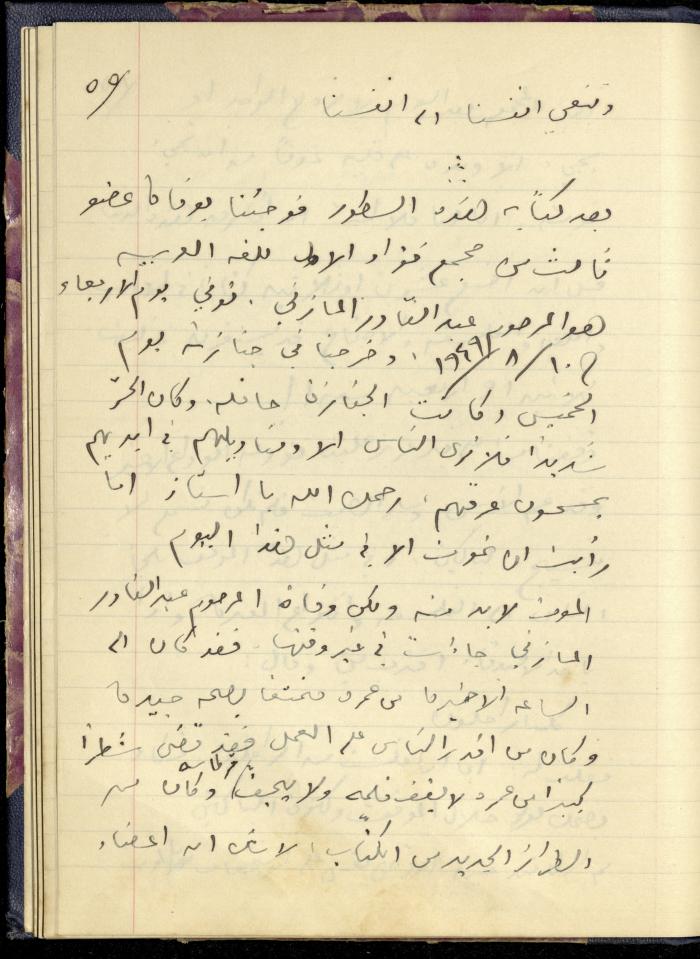 ٥٩
وننعي انفسنا الى انفسنا
بعد كتابة هذه السطور فوجئنا بوفاة عضو
ثالث من مجمع فؤاد الاول للغه العربيه
هو المرحوم عبد القادر المازني. توفي يوم الاربعاء
١٠/٨/١٩٤٩، وخرجنا في جنازته يوم
الخميس وكانت الجنازة حافله. وكان الحرّ
شديداً فلا ترى الناس الا ومناديلهم في ايديهم
يمسحون عرقهم، رحمك الله يا استاذ اما
رأيت ان تموت الا في مثل هذا اليوم
الموت لابد منه ولكن وفاة المرحوم عبد القادر
المازني جاءت في غير وقتها. فقد كان الى
الساعه الاخيرة من عمره متمتعا بصحه جيدة
وكان من اقدر الناس على العمل فقد قضى شطراً
كبيراً من عمره لا يقف قلمه ولا يجف وكان من
الطراز الجديد من الكتّاب، لا شك ان اعضاء